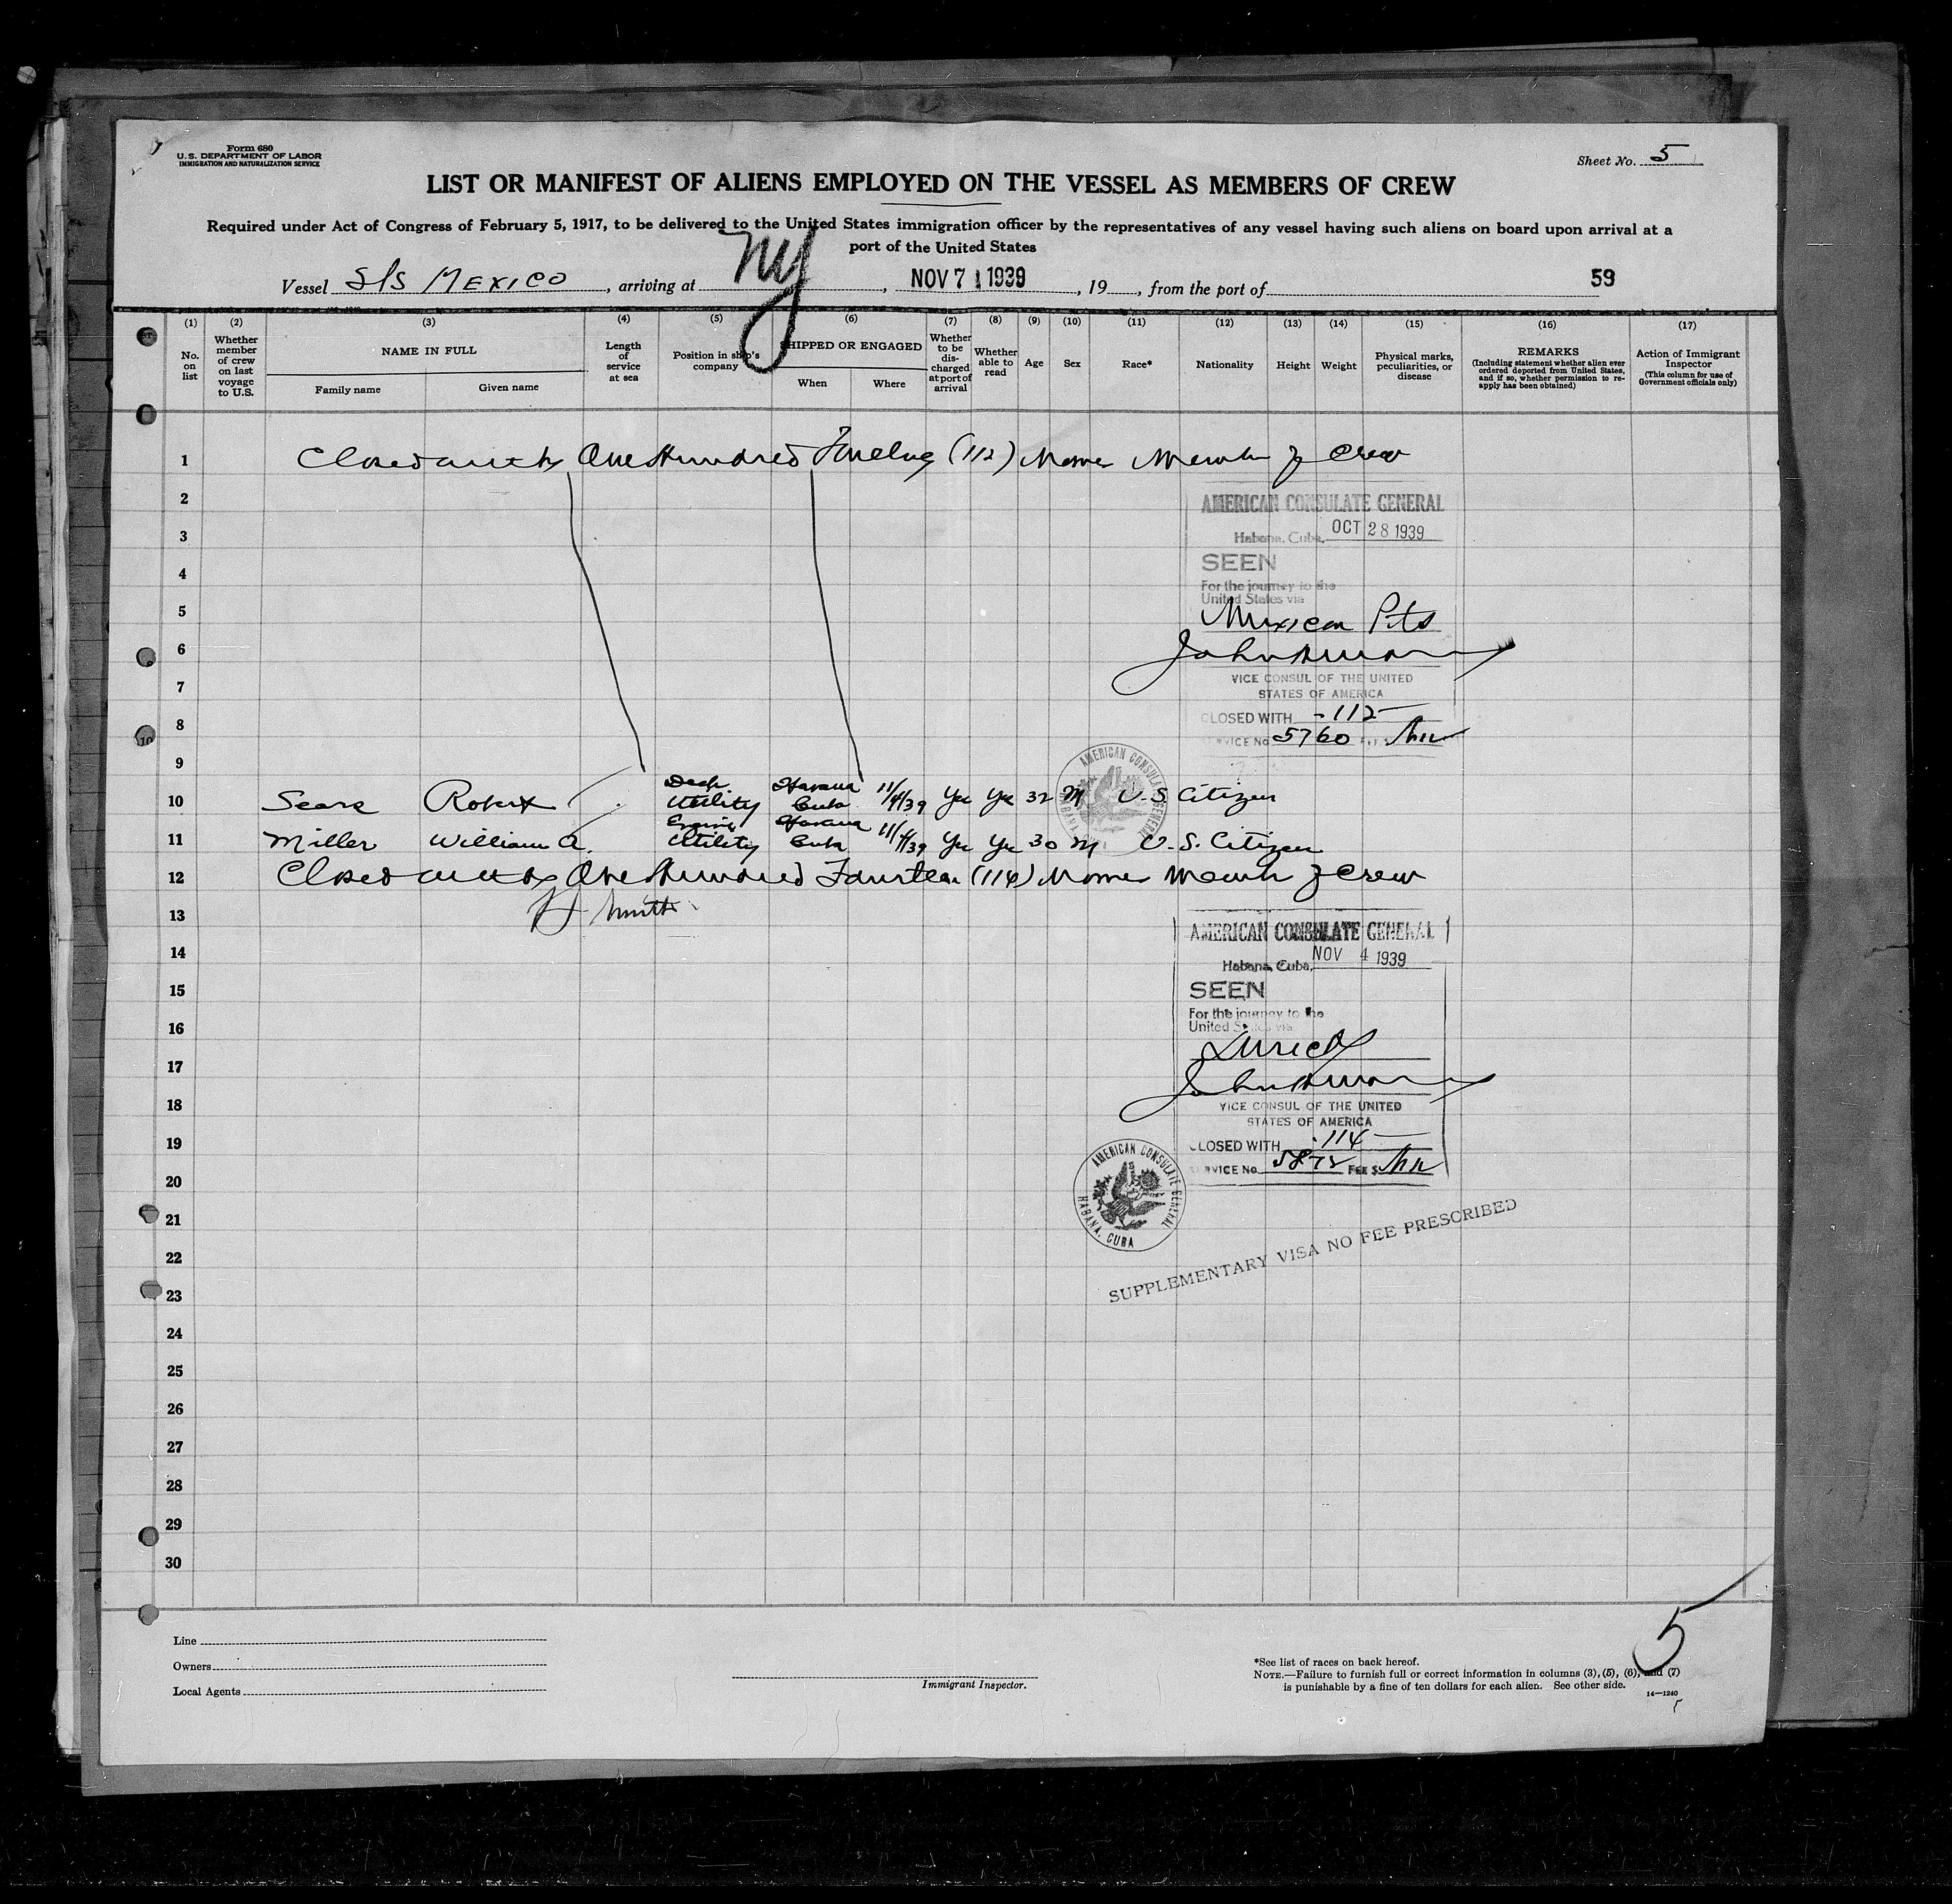 Form 680
U.S. DEPARTMENT OF LABOR
IMMIGRATION AND NATURALIZATION SERVICE
Sheet No. 5
LIST OR MANIFEST OF ALIENS EMPLOYED ON THE VESSEL AS MEMBERS OF CREW
Required under Act of Congress of February 5, 1917, to be delivered to the United States immigration officer by the representatives of any vessel having such aliens on board upon arrival at a
port of the United States
Vessel S/S MEXICO, arriving at NY, NOV 7 1939, 19, from the port of 59
(1) (2) (3) (4) (5) (6) (7) (8) (9) (10) (11) (12) (13) (14) (15) (16) (17)
No. on list
Whether member of crew on last voyage to U.S.
NAME IN FULL
Family name
Given name
Length of service at sea
Position in ship's company
SHIPPED OR ENGAGED
When
Where
Whether to be discharged at port of arrival
Whether able to read
Age
Sex
Race*
Nationality
Height
Weight
Physical marks, peculiarities, or disease
REMARKS
(Including statement whether alien ever ordered deported from United States, and if so, whether permission to reapply has been obtained)
Action of Immigrant Inspector
(This column for use of Government officials only)
1 Closed with One Hundred Twelve (112) Names Memb of Crew
2
AMERICAN CONSULATE GENERAL
3
Habana, Cuba, OCT 28 1939
SEEN
4
For the journey to the
United States via
5
Mexican Pts
6
7
VICE CONSUL OF THE UNITED
STATES OF AMERICA
8
CLOSED WITH -112-
SERVICE No. 5760
9
AMERICAN CONSULATE GENERAL HABANA, CUBA
10 Sears Robert Deck Utility Havana Cuba 11/4/39 Yes Yes 32 M U.S. Citizen
11 Miller William A. Engine Utility Havana Cuba 11/4/39 Yes Yes 30 M U.S. Citizen
12 Closed with One Hundred Fourteen (114) Names Memb of Crew
13 Smith
AMERICAN CONSULATE GENERAL
14
Habana, Cuba, NOV 4 1939
15
SEEN
For the journey to the
16
United States via
17
Direct
18
VICE CONSUL OF THE UNITED
STATES OF AMERICA
19
CLOSED WITH 114
SERVICE No. FEE $
20
AMERICAN CONSULATE GENERAL HABANA, CUBA
21
22
SUPPLEMENTARY VISA NO FEE PRESCRIBED
23
24
25
26
27
28
29
30
5
Line
Owners
Local Agents
Immigrant Inspector.
*See list of races on back hereof.
NOTE.—Failure to furnish full or correct information in columns (3), (5), (6), and (7)
is punishable by a fine of ten dollars for each alien. See other side.
14—1240